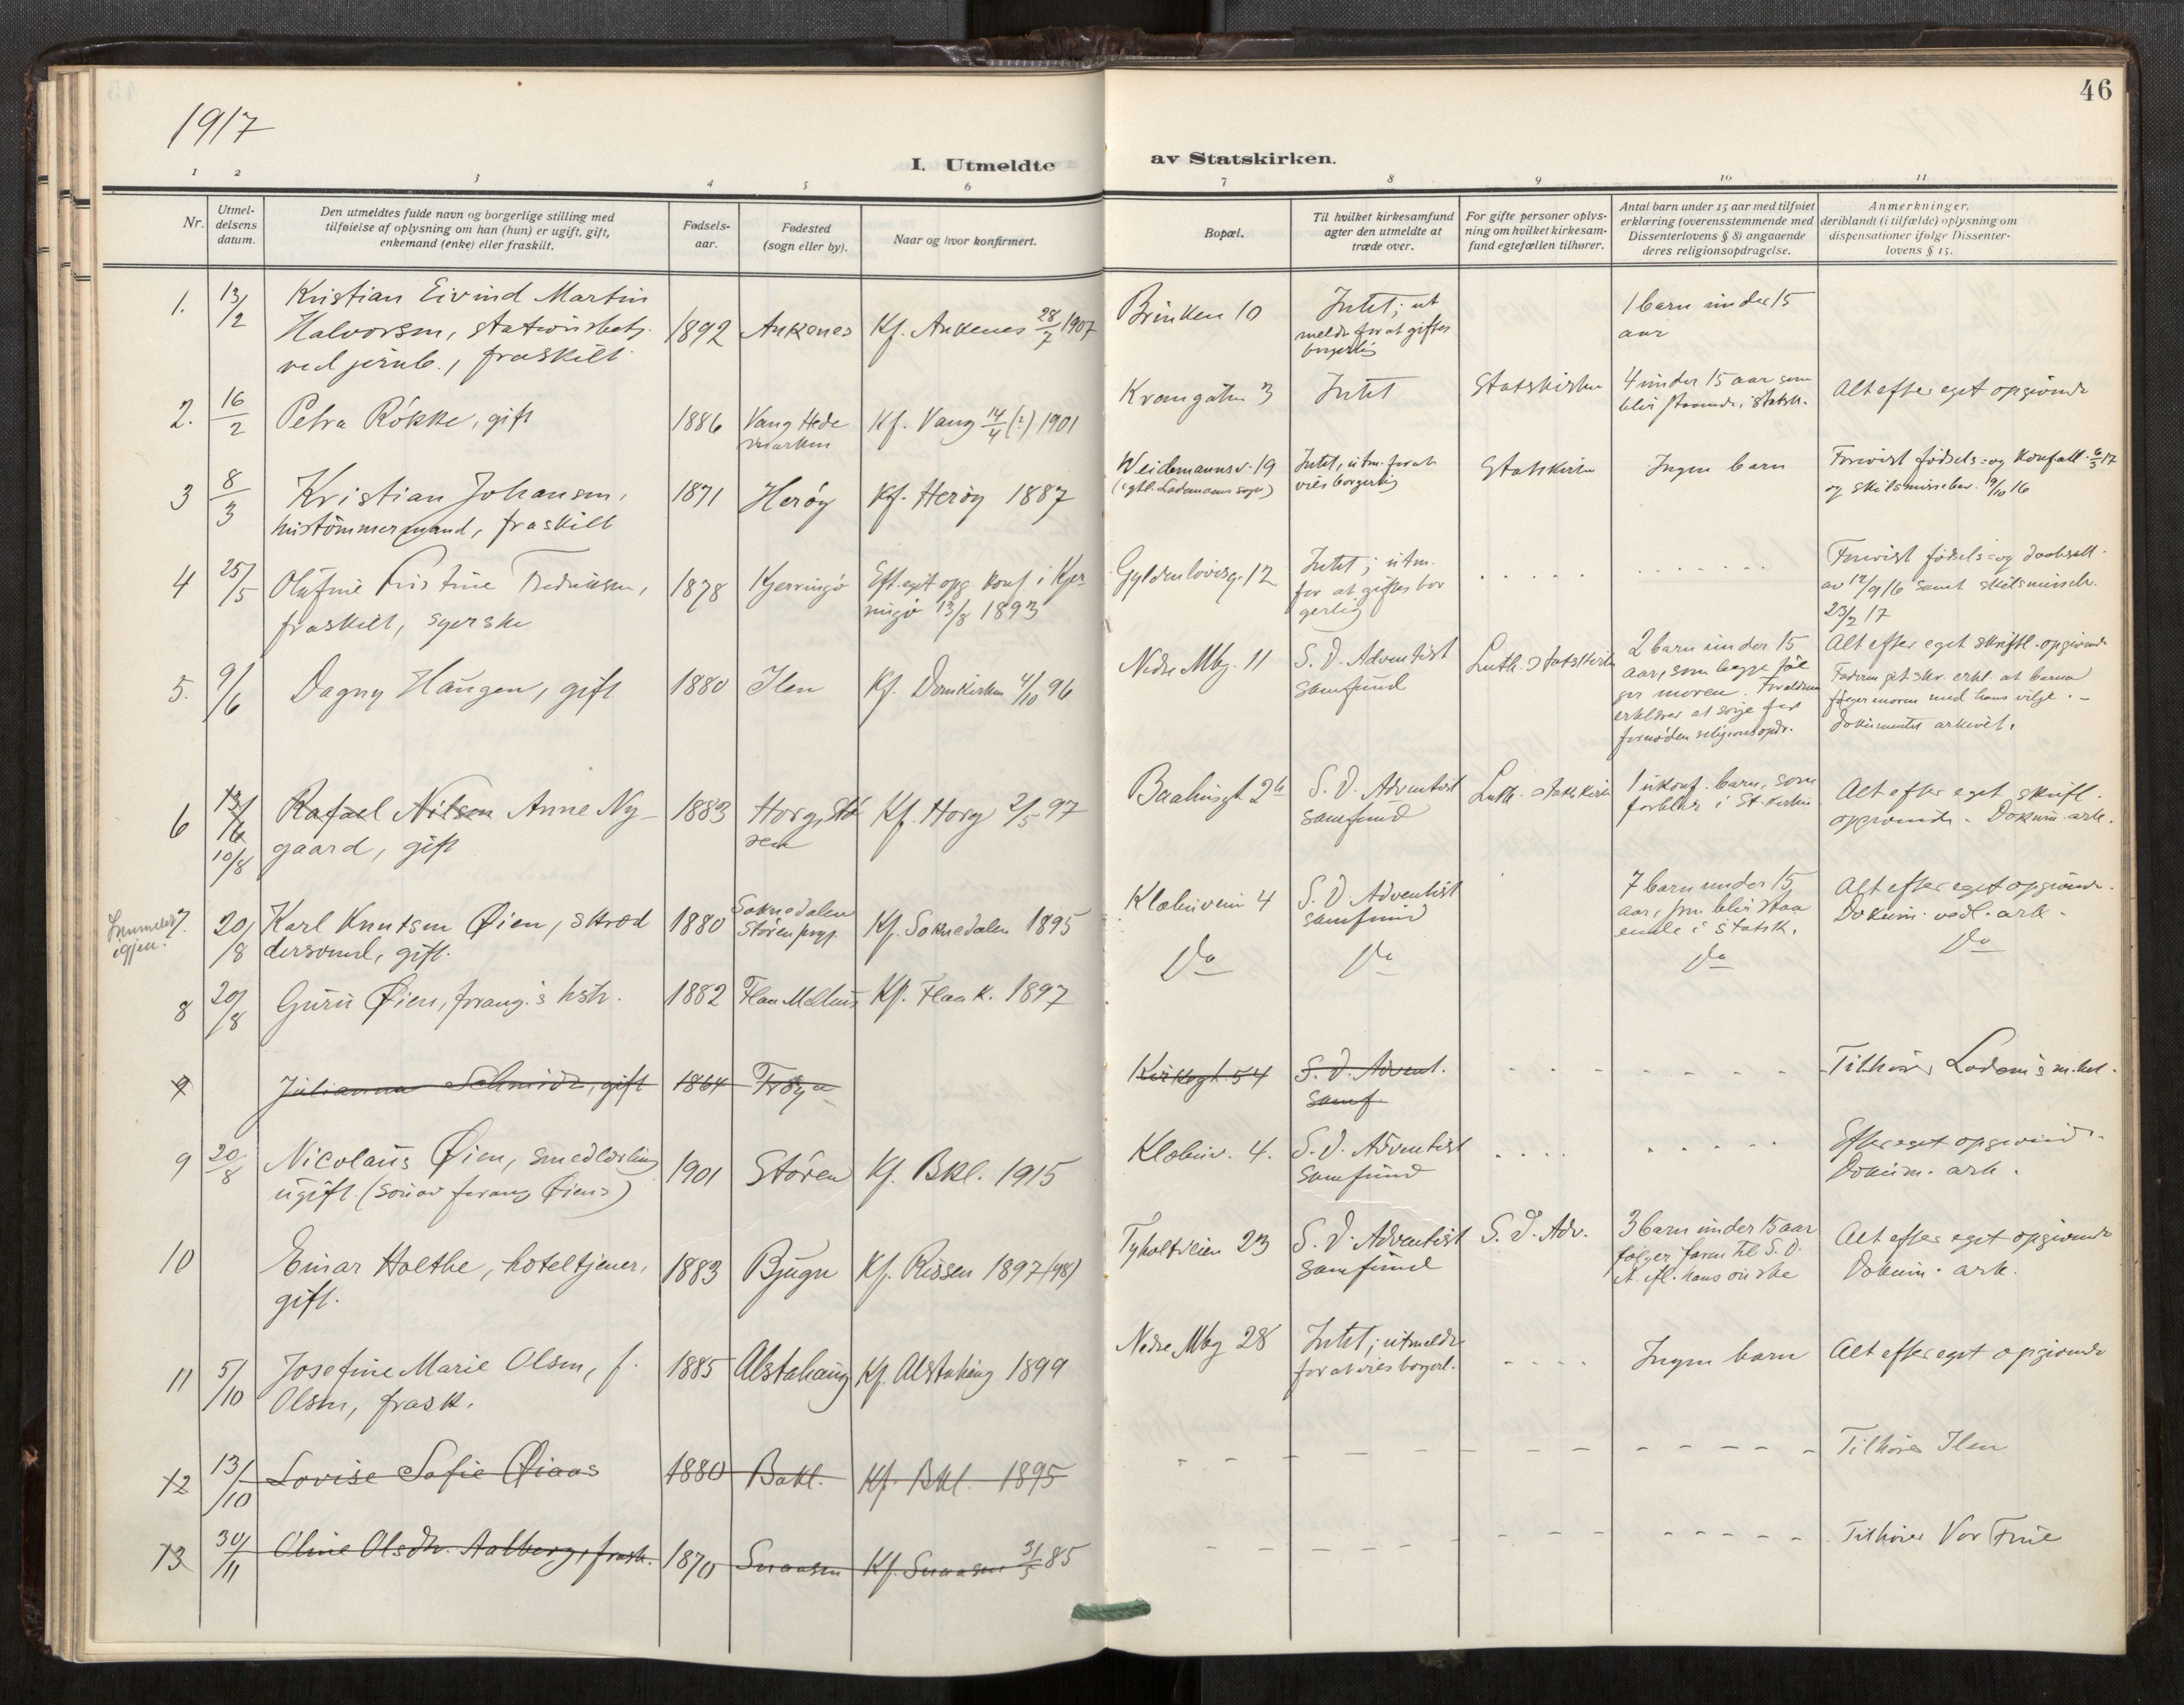 46
1917
I. Utmeldte av Statskirken.
1 2 3 4 5 6 7 8 9 10 11
Nr.
Utmel-
delsens
datum.
Den utmeldtes fulde navn og borgerlige stilling med
tilføielse af oplysning om han (hun) er ugift, gift,
enkemand (enke) eller fraskilt.
Fødsels-
aar.
Fødested
(sogn eller by).
Naar og hvor konfirmert.
Bopæl.
Til hvilket kirkesamfund
agter den utmeldte at
træde over.
For gifte personer oplys-
ning om hvilket kirkesam-
fund egtefællen tilhører.
Antal barn under 15 aar med tilføiet
erklæring (overensstemmende med
Dissenterlovens § 8) angaaende
deres religionsopdragelse.
Anmerkninger,
deriblandt (i tilfælde) oplysning om
dispensationer ifølge Dissenter-
lovens § 15.
1. 13/2 Kristian Eivind Martin
Halvorsen, stationsbetj.
ved jernb., fraskilt
1892 Ankenes Kf. Ankenes 28/7 1907
Brinken 10
Intet; ut
meldt for at giftes
borgerlig
1 barn under 15
aar
2. 16/2 Petra Rökke, gift
1886 Vang Hede
marken
Kf. Vang 14/4 (?) 1901
Kramgaten 3
Intet
Statskirken
4 under 15 aar som
blir staaende i statsk.
Alt efter eget opgivende
3 8/3 Kristian Johansen,
hustömmermand, fraskilt
1871 Heröy Kf. Heröy 1887
Weidemannsv. 19
(egtl. Lademoens sogn)
Intet, utm. for at
vies borgerlig
Statskirken
Ingen barn
Forevist fødsels- og konfatt. 6/3 17
og skilsmissebev. 19/10 16
4 25/5 Olufine Kristine Fredriksen,
fraskilt, syerske
1878 Kjerringö
Eft. eget opg. konf. i Kjer-
ringö 13/8 1893
Gyldenløvesg. 12
Intet; utm.
for at giftes bor
gerlig
Forevist fødsels- og daabsatt.
av 12/9 16 samt skilsmisseb.
23/2 17
5. 9/6 Dagny Haugen, gift
1880 Ilen Kf. Domkirken 4/10 96
Nedre Mbg. 11
S. D. Adventist
samfund
Luth. statskirken
2 barn under 15
aar, som begge föl
ger moren. Forældrene
erklærer at sörge for
fornöden religionsopdr.
Alt efter eget skriftl. opgivende
Faderen git skr. erkl. at barna
fölger moren med hans vilje. -
Dokumenter arkivet.
6 13/6 10/8 Rafael Nilsen Anne Ny-
gaard, gift
1883 Horg, Stö
ren
Kf. Horg 2/5 97
Baahusgt 2b
S. D. Adventist
samfund
Luth. statskirken
1 ukonf. barn, som
forblir i St. kirken
Alt efter eget skriftl.
opgivende. Dokum. ark.
Innmeldt
igjen.
7. 20/8 Karl Knutsen Øien, skræd
dersvend, gift.
1880 Soknedalen
Stören prgj.
Kf. Soknedalen 1895
Klæbuveien 4
S. D. Adventist
samfund
7 barn under 15
aar, som blir staa
ende i statsk.
Alt efter eget opgivende.
Dokum. vedl. ark.
8 20/8 Guru Øien, forang.s hstr.
1882 Flaa Melhus Kf. Flaa k. 1897
Do Do Do Do
9 Julianna Schmidt, gift
1864 Fröya
Kirkegt. 54
S. D. Advent.
samf
Tilhörer Lademoens m.het.
9 20/8 Nicolaus Øien, smedlærling
ugift. (sön av forang. Øiens)
1901 Stören Kf. Bkl. 1915
Klæbuv. 4.
S. D. Adventist
samfund
Efter eget opgivende.
Dokum. ark.
10 Einar Holthe, hoteltjener,
gift.
1883 Bjugn Kf. Rissen 1897 (98)
Tyholtveien 23
S. D. Adventist
samfund
S. D. Adv.
3 barn under 15 aar
følger faren til S. D.
A. efl. hans önske
Alt efter eget opgivende
Dokum. ark.
11 5/10 Josefine Marie Olsen, f.
Olsen, frask.
1885 Alstahaug Kf. Alstahaug 1899
Nedre Mbg 28
Intet; utmeldt
for at vies borgerl.
Ingen barn
Alt efter eget opgivende
12 13/10 Lovise Sofie Øiaas
1880 Bakl. Kf. Bkl. 1895
Tilhörer Ilen
13 30/11 Oline Olsdtr. Aalberg, frask.
1870 Snaasen Kf. Snaasen 31/5 85
Tilhörer Vor Frue